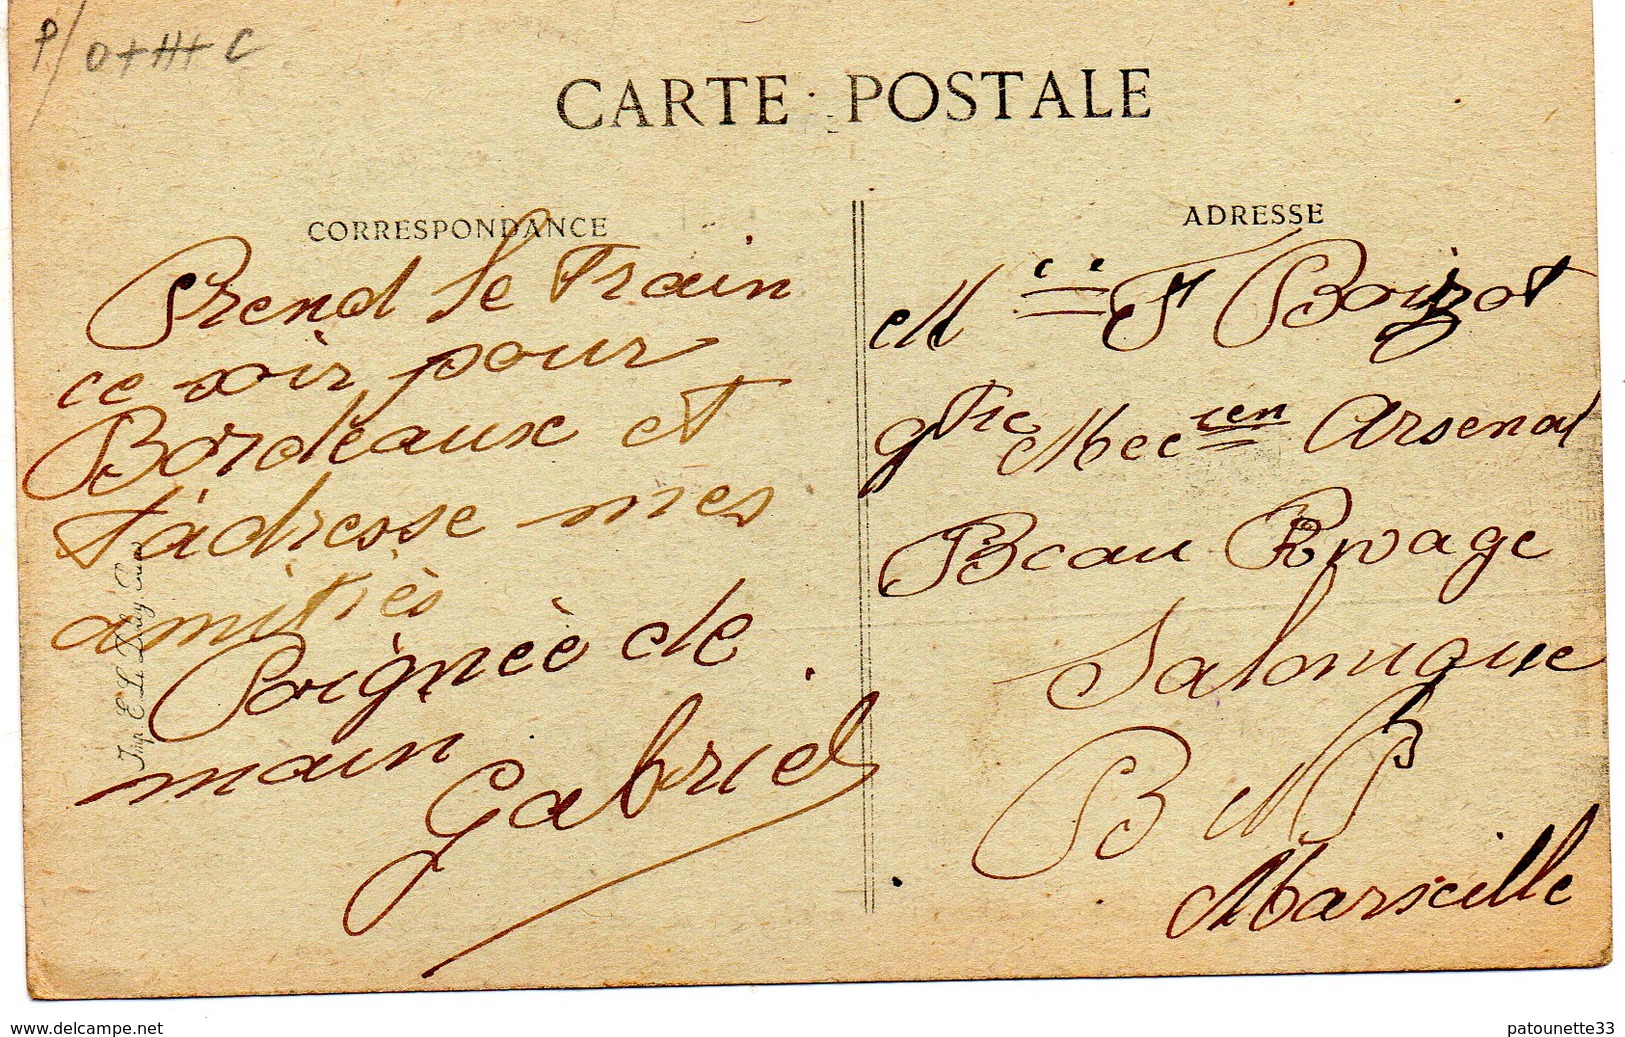 P/O+H+C
CARTE POSTALE
CORRESPONDANCE
Prend le train
ce soir pour
Bordeaux et
t'adresse mes
amitiès
Poignèe de
main
Gabriel
Imp. E. Le Deley, Paris
ADRESSE
M F Boizot
gtre Mec cen Arsenal
Beau Rivage
Salonique
B M
Marseille
www.delcampe.net
patounette33